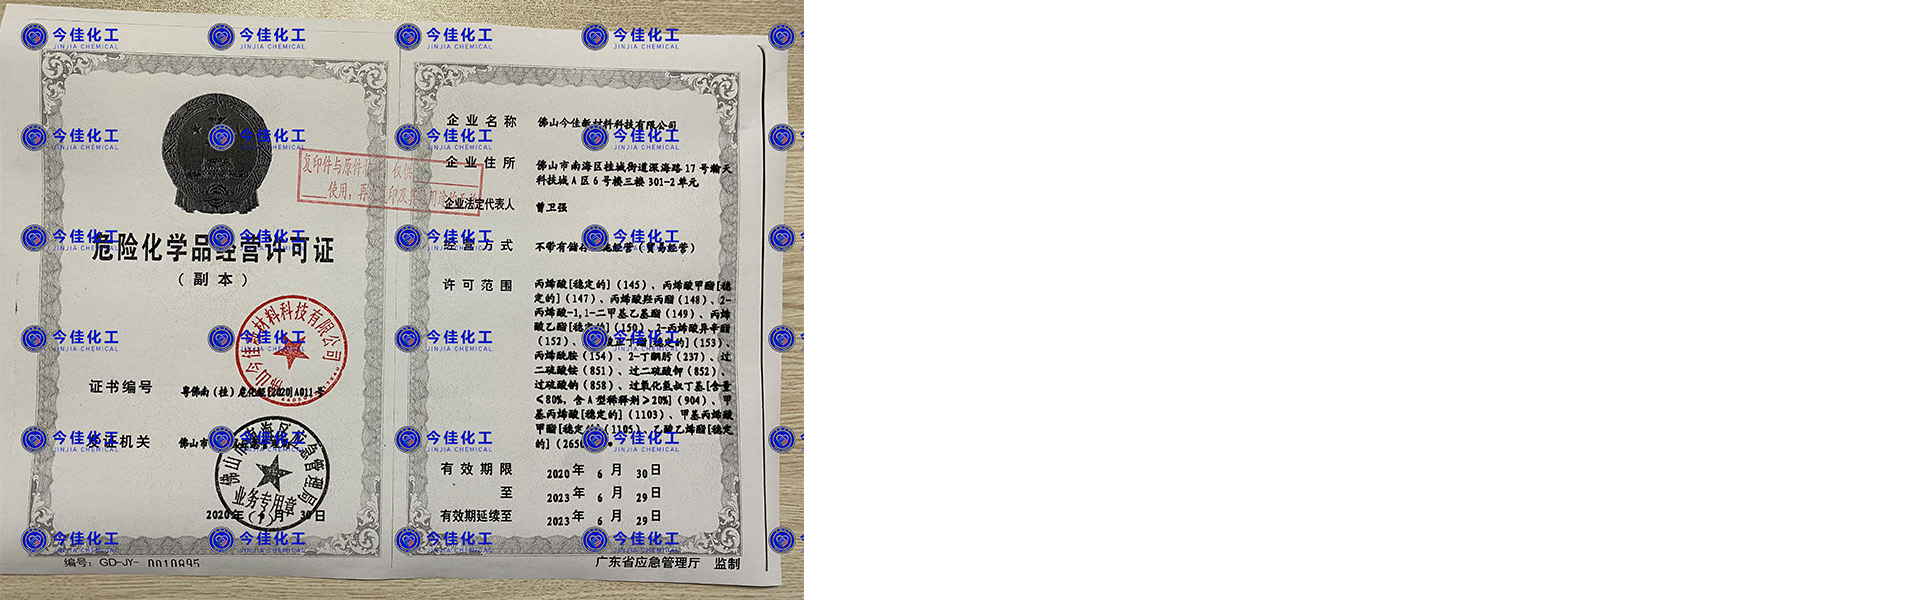 今佳化工
JINJIA CHEMICAL
危险化学品经营许可证
（副本）
证书编号
粤佛南（挂）危化经[2020]A011号
发证机关
佛山市
2020年 6月 30日
编号：GD-JY- 0010895
佛山今佳新材料科技有限公司
佛山市南海区应急管理局
业务专用章
（1）
复印件与原件
仅供
使用，再
企业名称 佛山今佳新材料科技有限公司
企业住所 佛山市南海区桂城街道深海路17号瀚天
科技城A区6号楼三楼301-2单元
企业法定代表人 曾卫强
经营方式 不带有储存 施经营（贸易经营）
许可范围 丙烯酸[稳定的]（145）、丙烯酸甲酯[稳
定的]（147）、丙烯酸羟丙酯（148）、2-
丙烯酸-1,1-二甲基乙基酯（149）、丙烯
酸乙酯[稳定的]（150）、2-丙烯酸异辛酯
（152）、 酸正丁酯[稳定的]（153）、
丙烯酰胺（154）、2-丁酮肟（237）、过
二硫酸铵（851）、过二硫酸钾（852）、
过硫酸钠（858）、过氧化氢叔丁基[含量
≤80%，含A型稀释剂≥20%]（904）、甲
基丙烯酸[稳定的]（1103）、甲基丙烯酸
甲酯[稳定的]（1105）、乙酸乙烯酯[稳定
的]（2650）*
有效期限 2020年 6月 30日
至 2023年 6月 29日
有效期延续至 2023年 6月 29日
广东省应急管理厅 监制